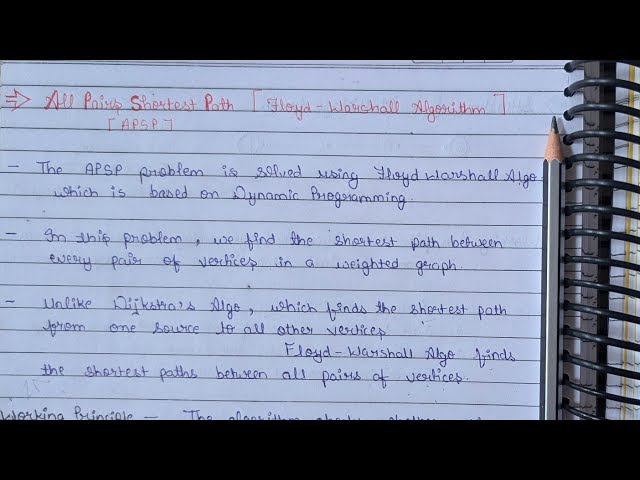 ⇒ All Pairs Shortest Path [ Floyd-Warshall Algorithm ]
[ APSP ]
- The APSP problem is solved using Floyd Warshall Algo
which is based on Dynamic Programming.
- In this problem, we find the shortest path between
every pair of vertices in a weighted graph.
- Unlike Dijkstra's Algo, which finds the shortest path
from one source to all other vertices
Floyd-Warshall Algo finds
the shortest paths between all pairs of vertices.
Working Principle - The algorithm